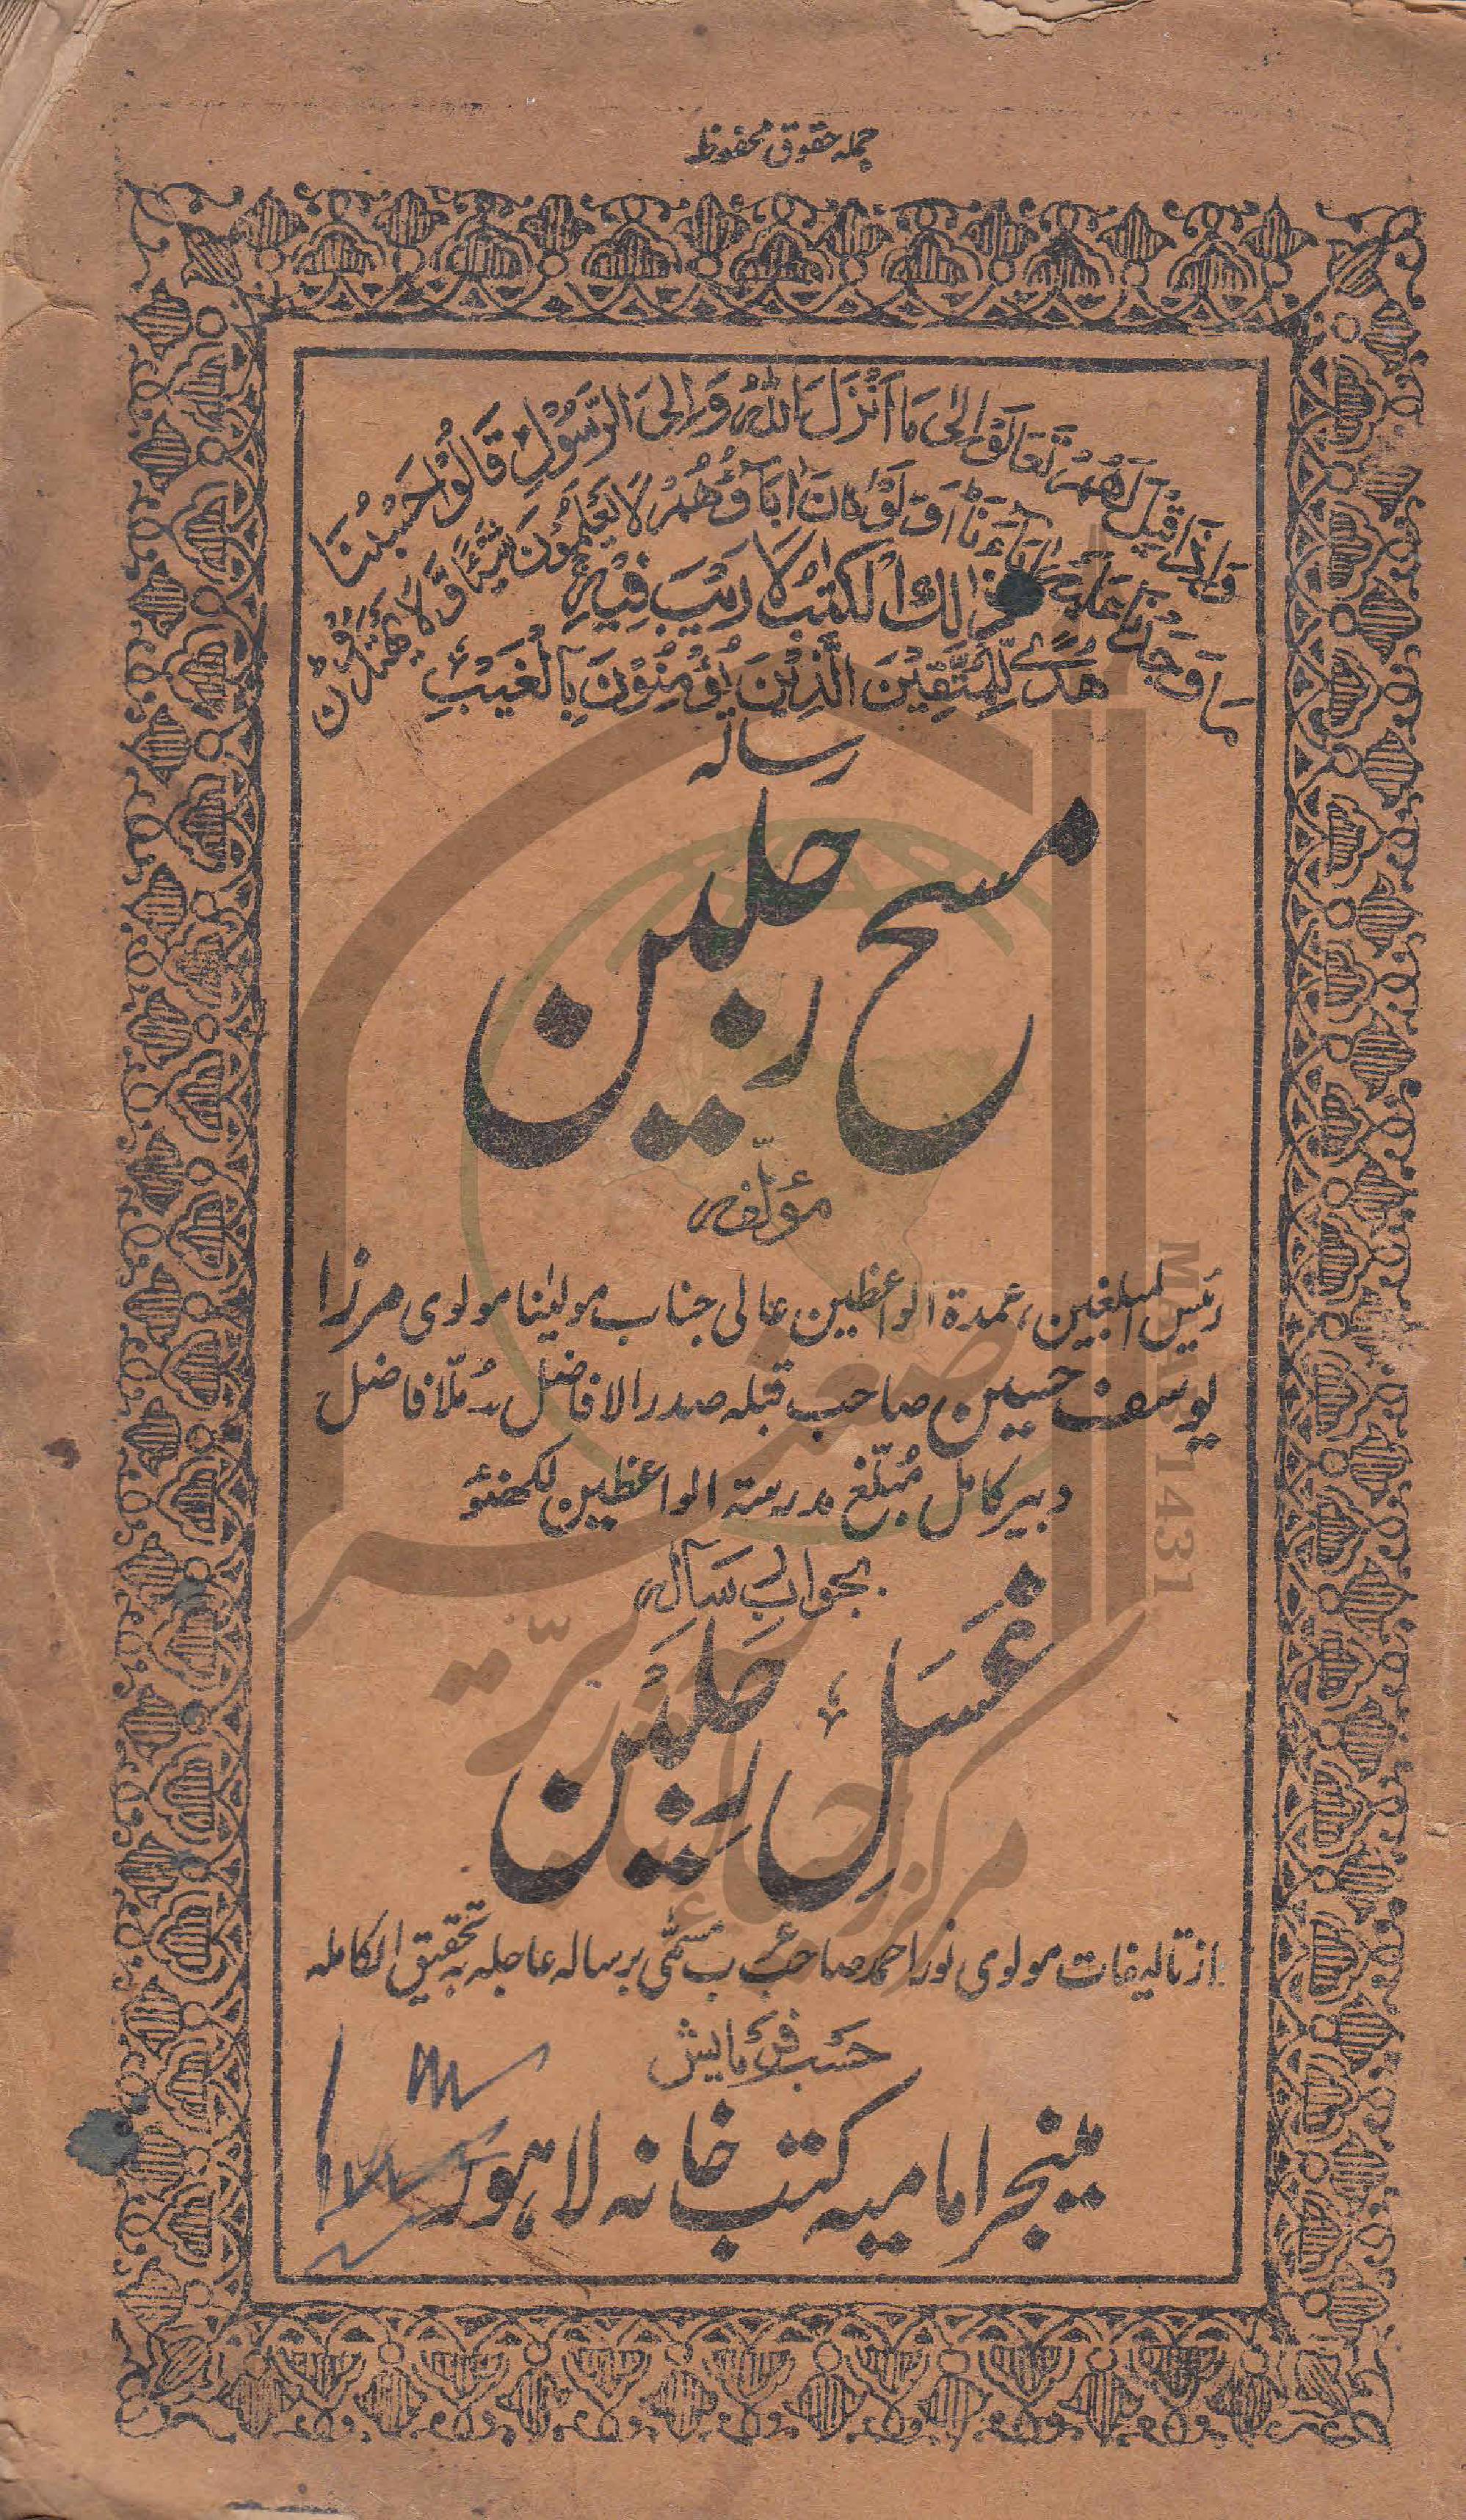 جملہ حقوق محفوظ
وَاِذَا قِیْلَ لَهُمْ تَعَالَوْا اِلٰی مَا اَنْزَلَ اللّٰهُ وَاِلَی الرَّسُوْلِ قَالُوْا حَسْبُنَا
مَا وَجَدْنَا عَلَیْهِ اٰبَآءَنَا اَوَلَوْ كَانَ اٰبَآؤُهُمْ لَا یَعْلَمُوْنَ شَیْئًا وَّلَا یَهْتَدُوْنَ
ذٰلِكَ الْكِتٰبُ لَا رَیْبَ فِیْهِ
هُدًی لِّلْمُتَّقِیْنَ الَّذِیْنَ یُؤْمِنُوْنَ بِالْغَیْبِ
رسالہ
مسح رجلین
مؤلّفہ
رئیس المبلغین، عمدۃ الواعظین عالی جناب مولیٰنا مولوی مرزا
یوسف حسین صاحب قبلہ صدر الافاضل، مُلّا فاضل
دبیر کامل مُبلّغ مدرستہ الواعظین لکھنؤ
بجواب رسالہ
غَسْلِ رِجْلَیْن
از تالیفات مولوی نور احمد صاحب مسمّٰی برسالہ عاجلہ بہ تحقیق الکاملہ
حَسْبِ فَرمایش
مینجر امامیہ کتب خانہ لاہور
MAAB 1431
مرکز احیاء